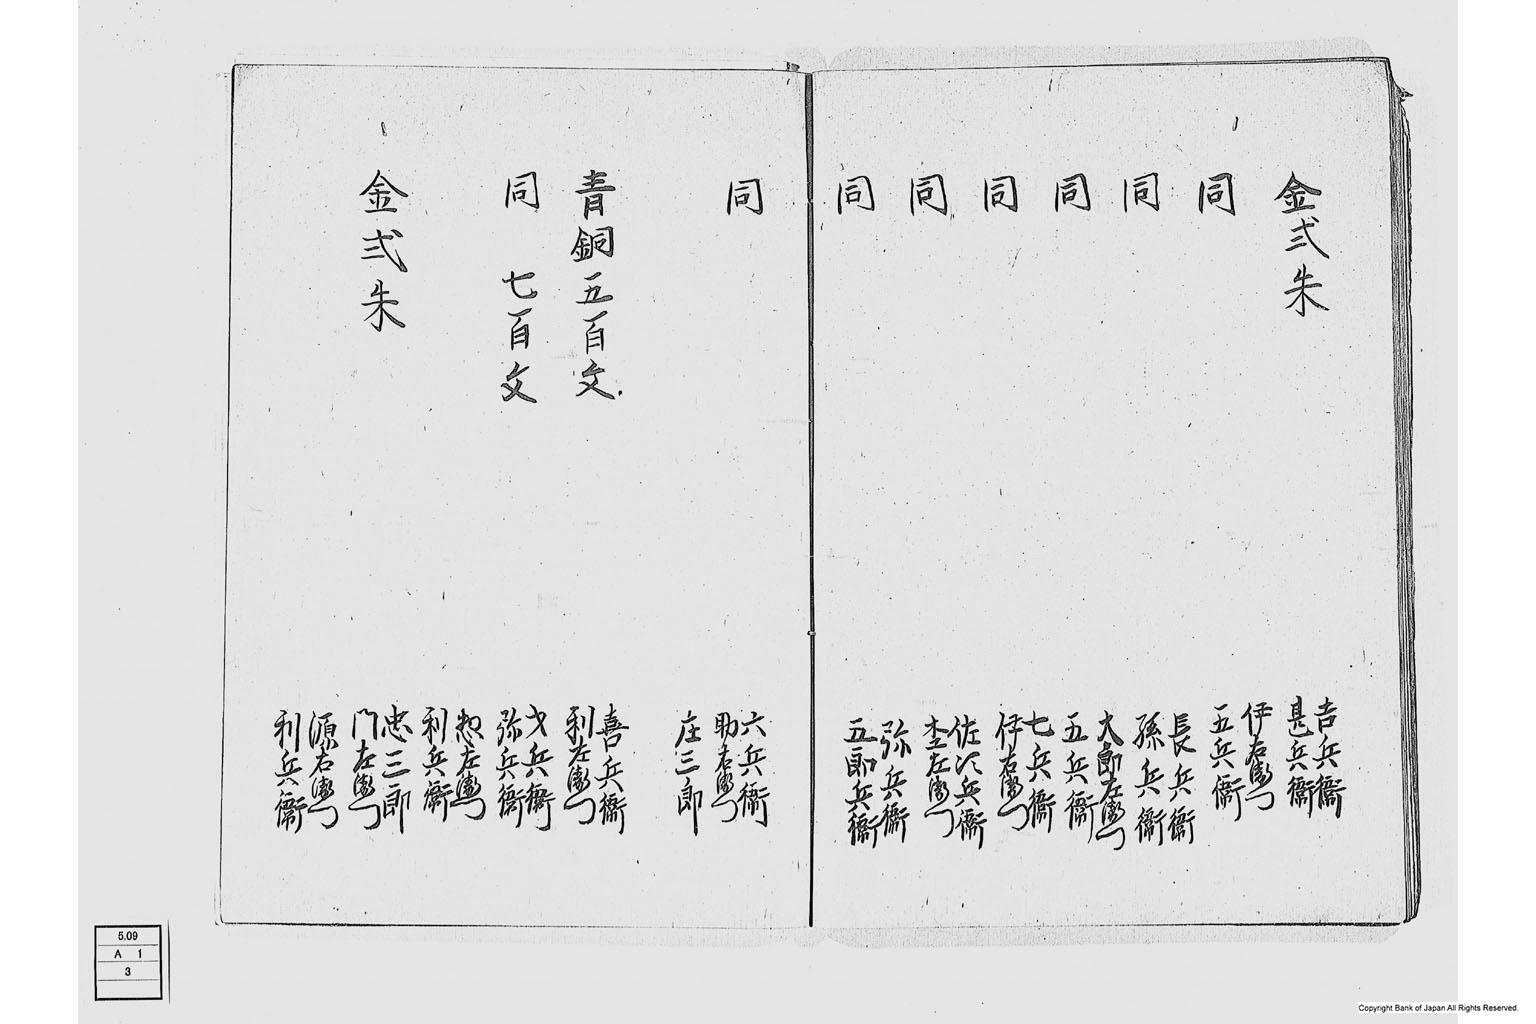 金弐朱
吉兵衛
甚兵衛
同
伊右衛門
五兵衛
同
長兵衛
孫兵衛
同
太郎左衛門
五兵衛
同
七兵衛
伊右衛門
同
佐次兵衛
杢左衛門
同
弥兵衛
五郎兵衛
同
六兵衛
助右衛門
庄三郎
青銅五百文
喜兵衛
利左衛門
同 七百文
才兵衛
弥兵衛
惣左衛門
利兵衛
金弐朱
忠三郎
門左衛門
源右衛門
利兵衛
5.09
A 1
3
Copyright Bank of Japan All Rights Reserved.